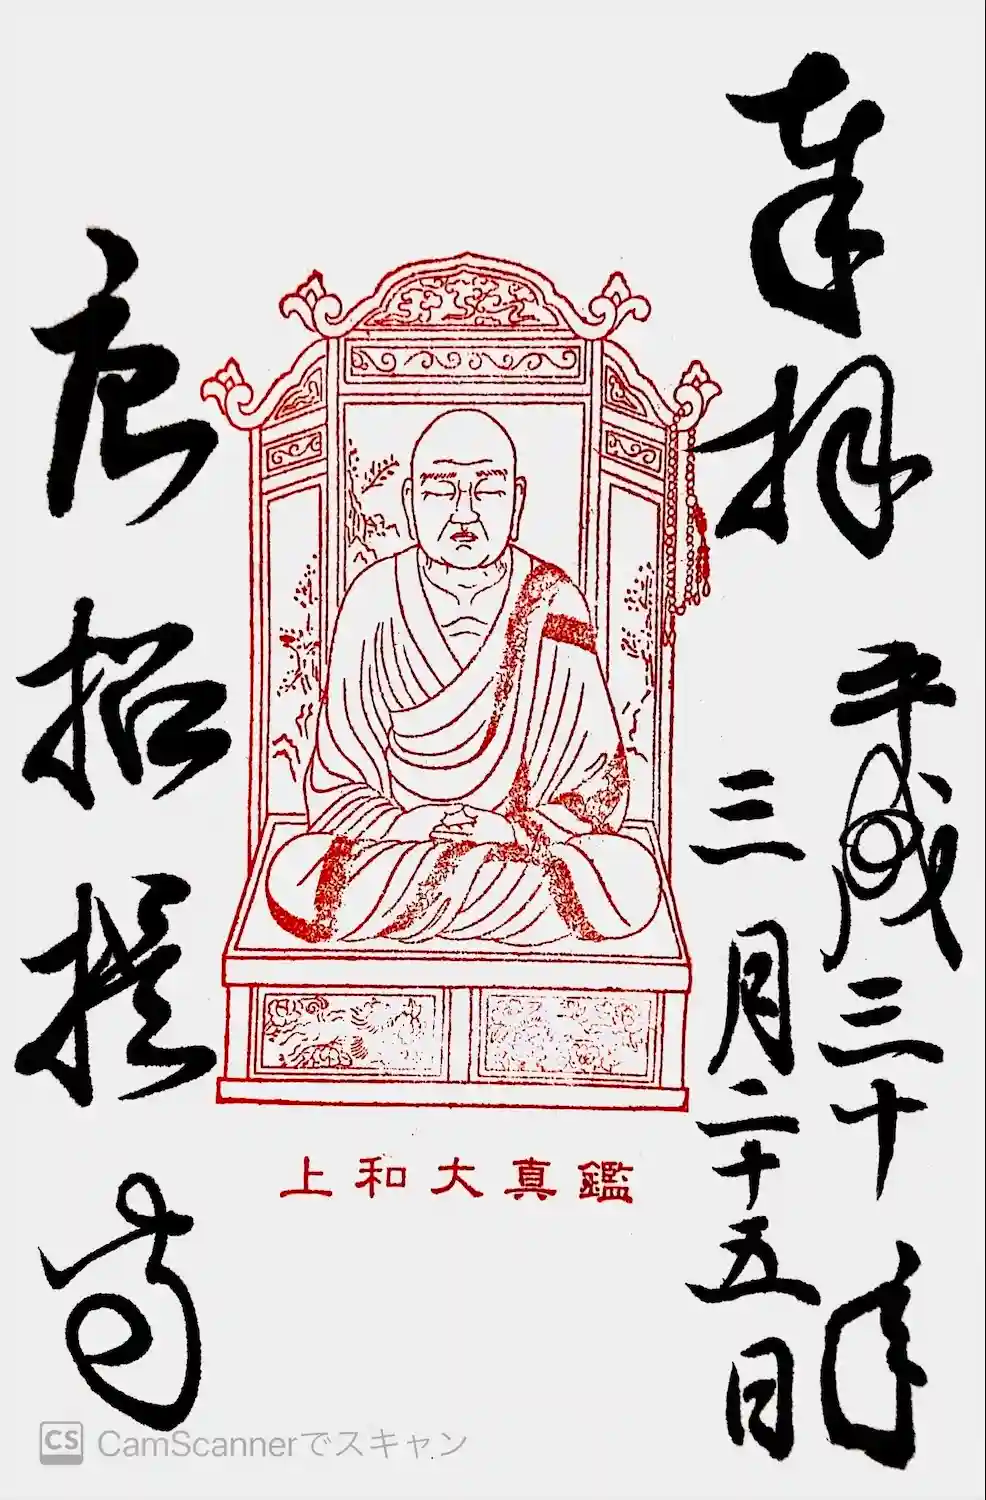 奉拝
平成三十年
三月二十五日
鑑真大和上
唐招提寺
CS CamScannerでスキャン